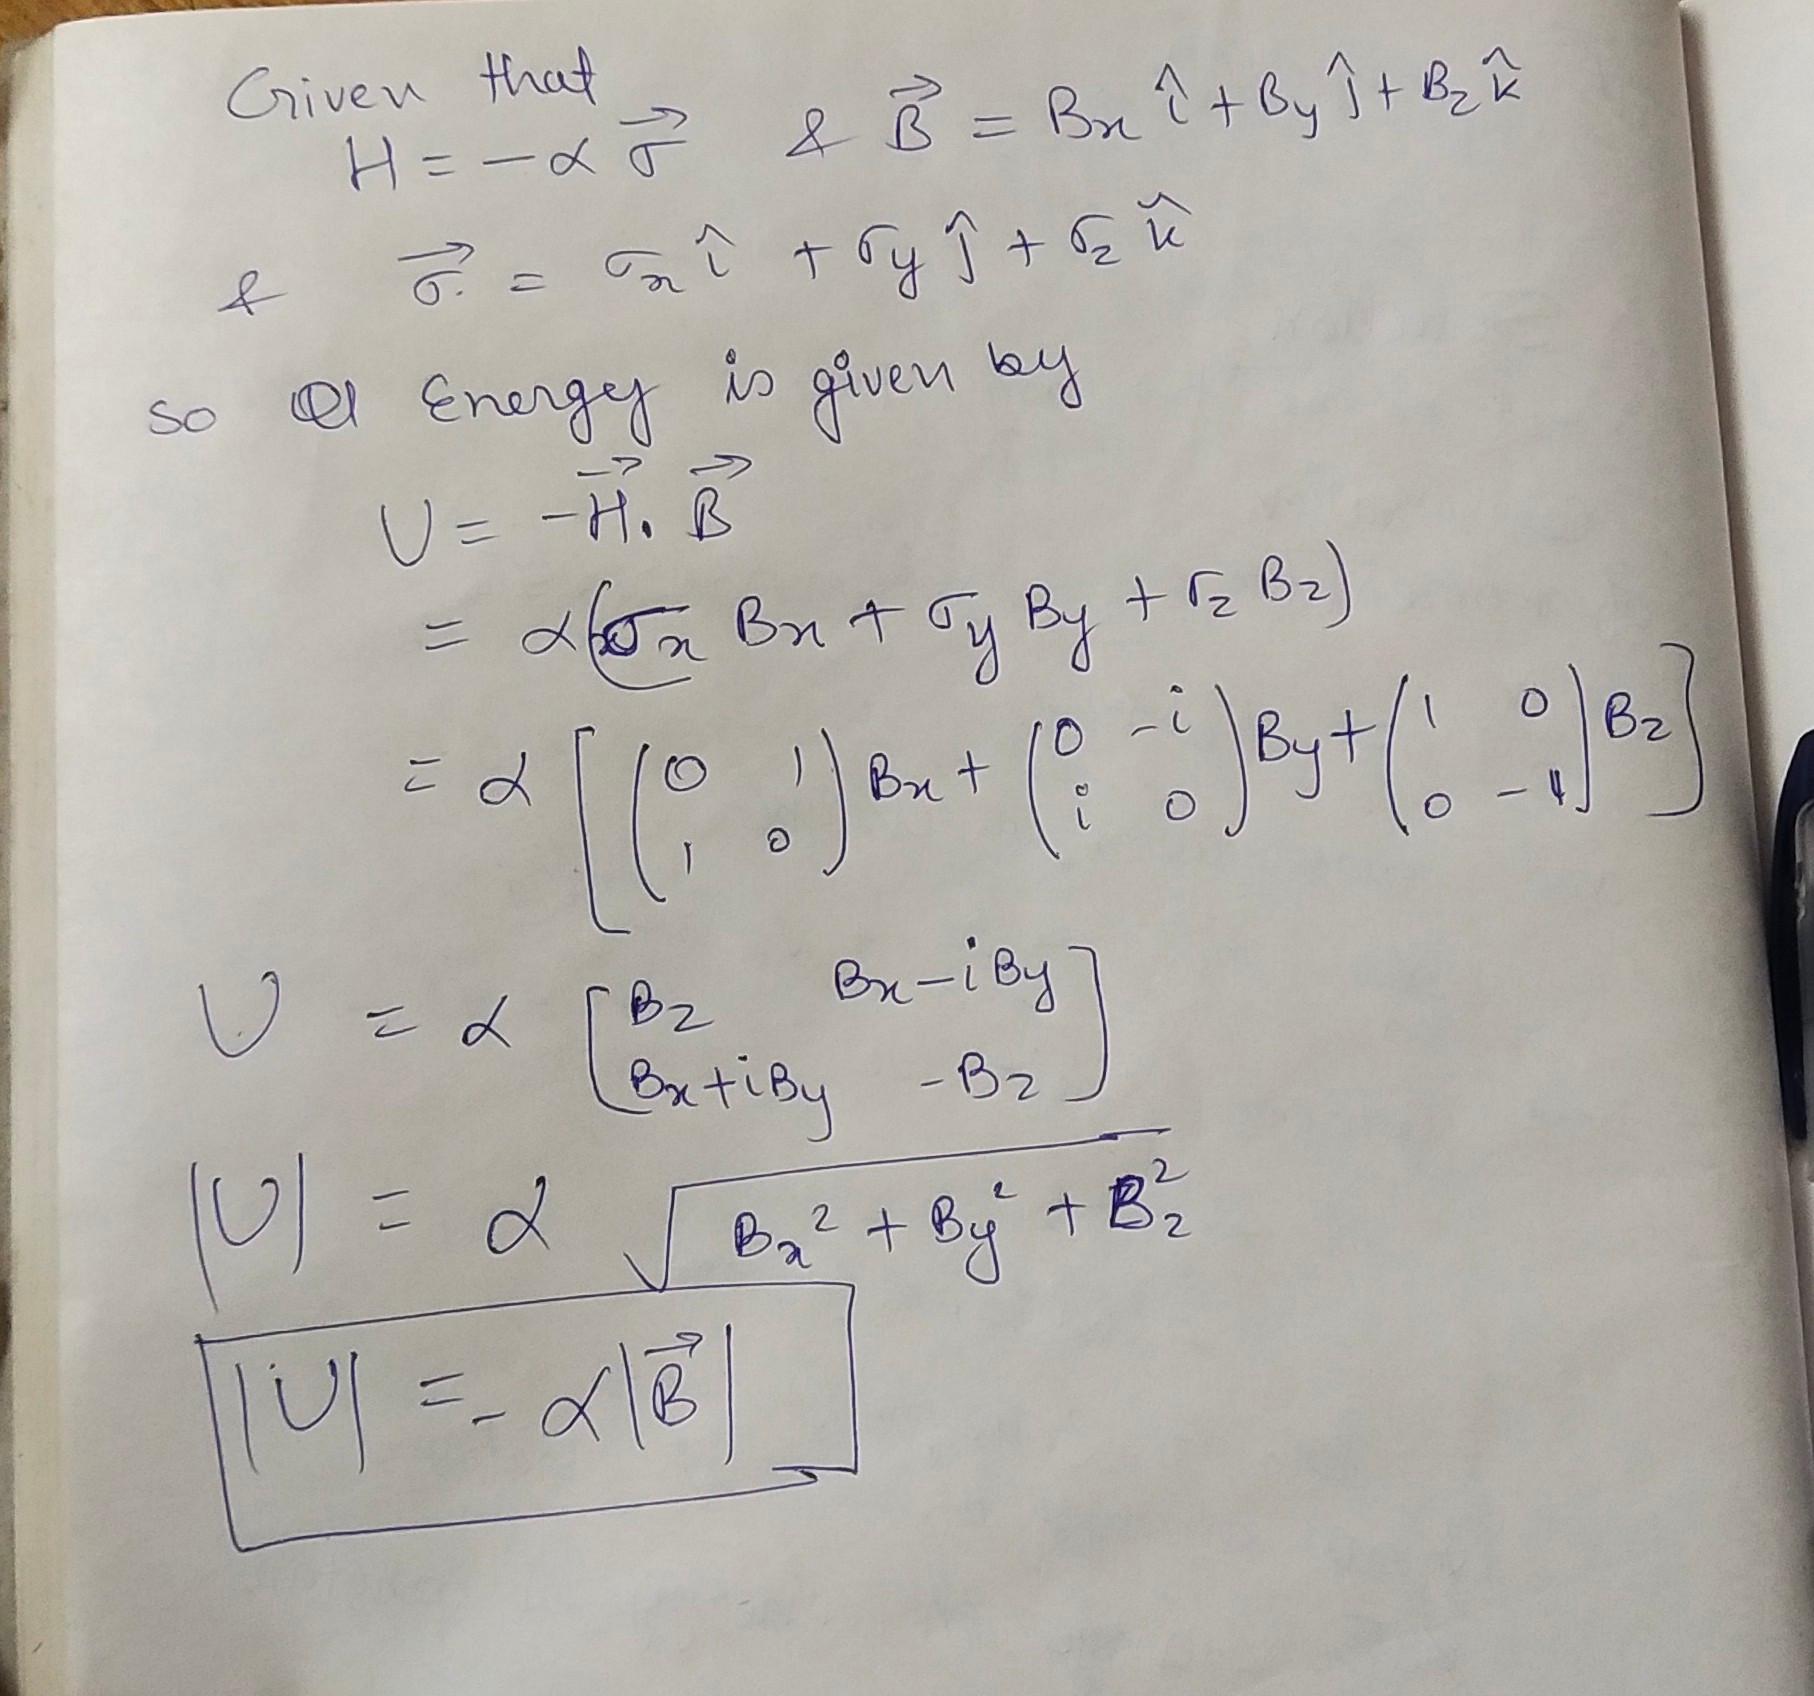 Given that
H = -α σ⃗ & B⃗ = Bx î + By ĵ + Bz k̂
& σ⃗. = σx î + σy ĵ + σz k̂
so Energy is given by
U = -H⃗. B⃗
= α(σx Bx + σy By + σz Bz)
= α [(0 1; 1 0) Bx + (0 -i; i 0) By + (1 0; 0 -1) Bz]
U = α [Bz Bx-iBy; Bx+iBy -Bz]
|U| = α √(Bx² + By² + Bz²)
|U| = - α|B⃗|